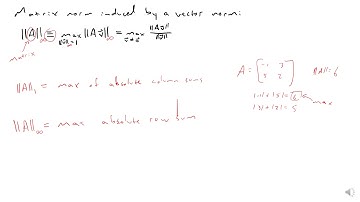 Matrix norm induced by a vector norm:
||A|| = max ||A v̄||∞ = max ||A v̄|| / ||v̄||
||v̄||=1
matrix
||A||₁ = max of absolute column sums
||A||∞ = max absolute row sum
A = ||A|| = 6
= 6
max
= 5